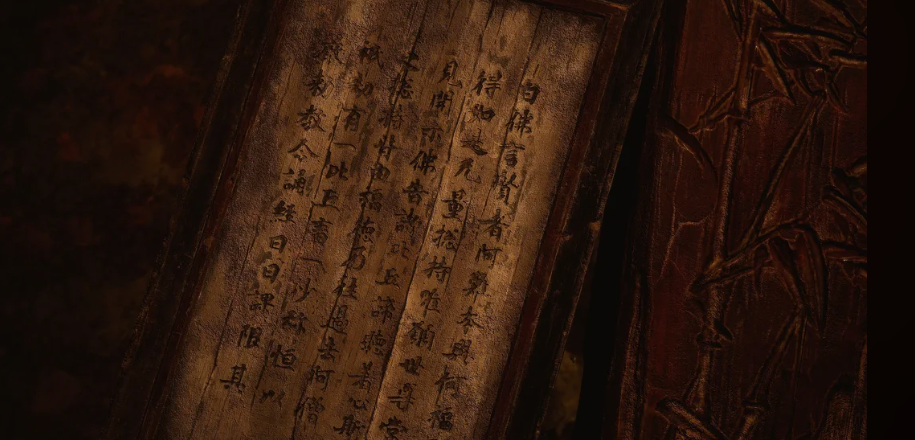 白佛言賢者阿難本興何福
得如是无量摠持唯願世尊
見聞示佛告諸比丘諦聽着心斯
之摠持皆由福德乃往過去阿僧
祇劫有一比丘畜一沙弥恒以
嚴敕教令誦經日日課限其